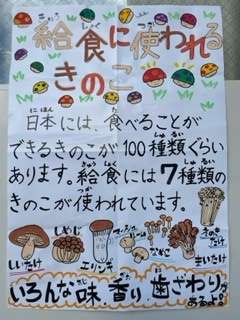 給食に使われる
きのこ
日本には、食べることが
できるきのこが100種類ぐらい
あります。給食には7種類の
きのこが使われています。
しいたけ
しめじ
エリンギ
なめこ
まいたけ
いろんな味、香り、歯ざわりが
あるよ。